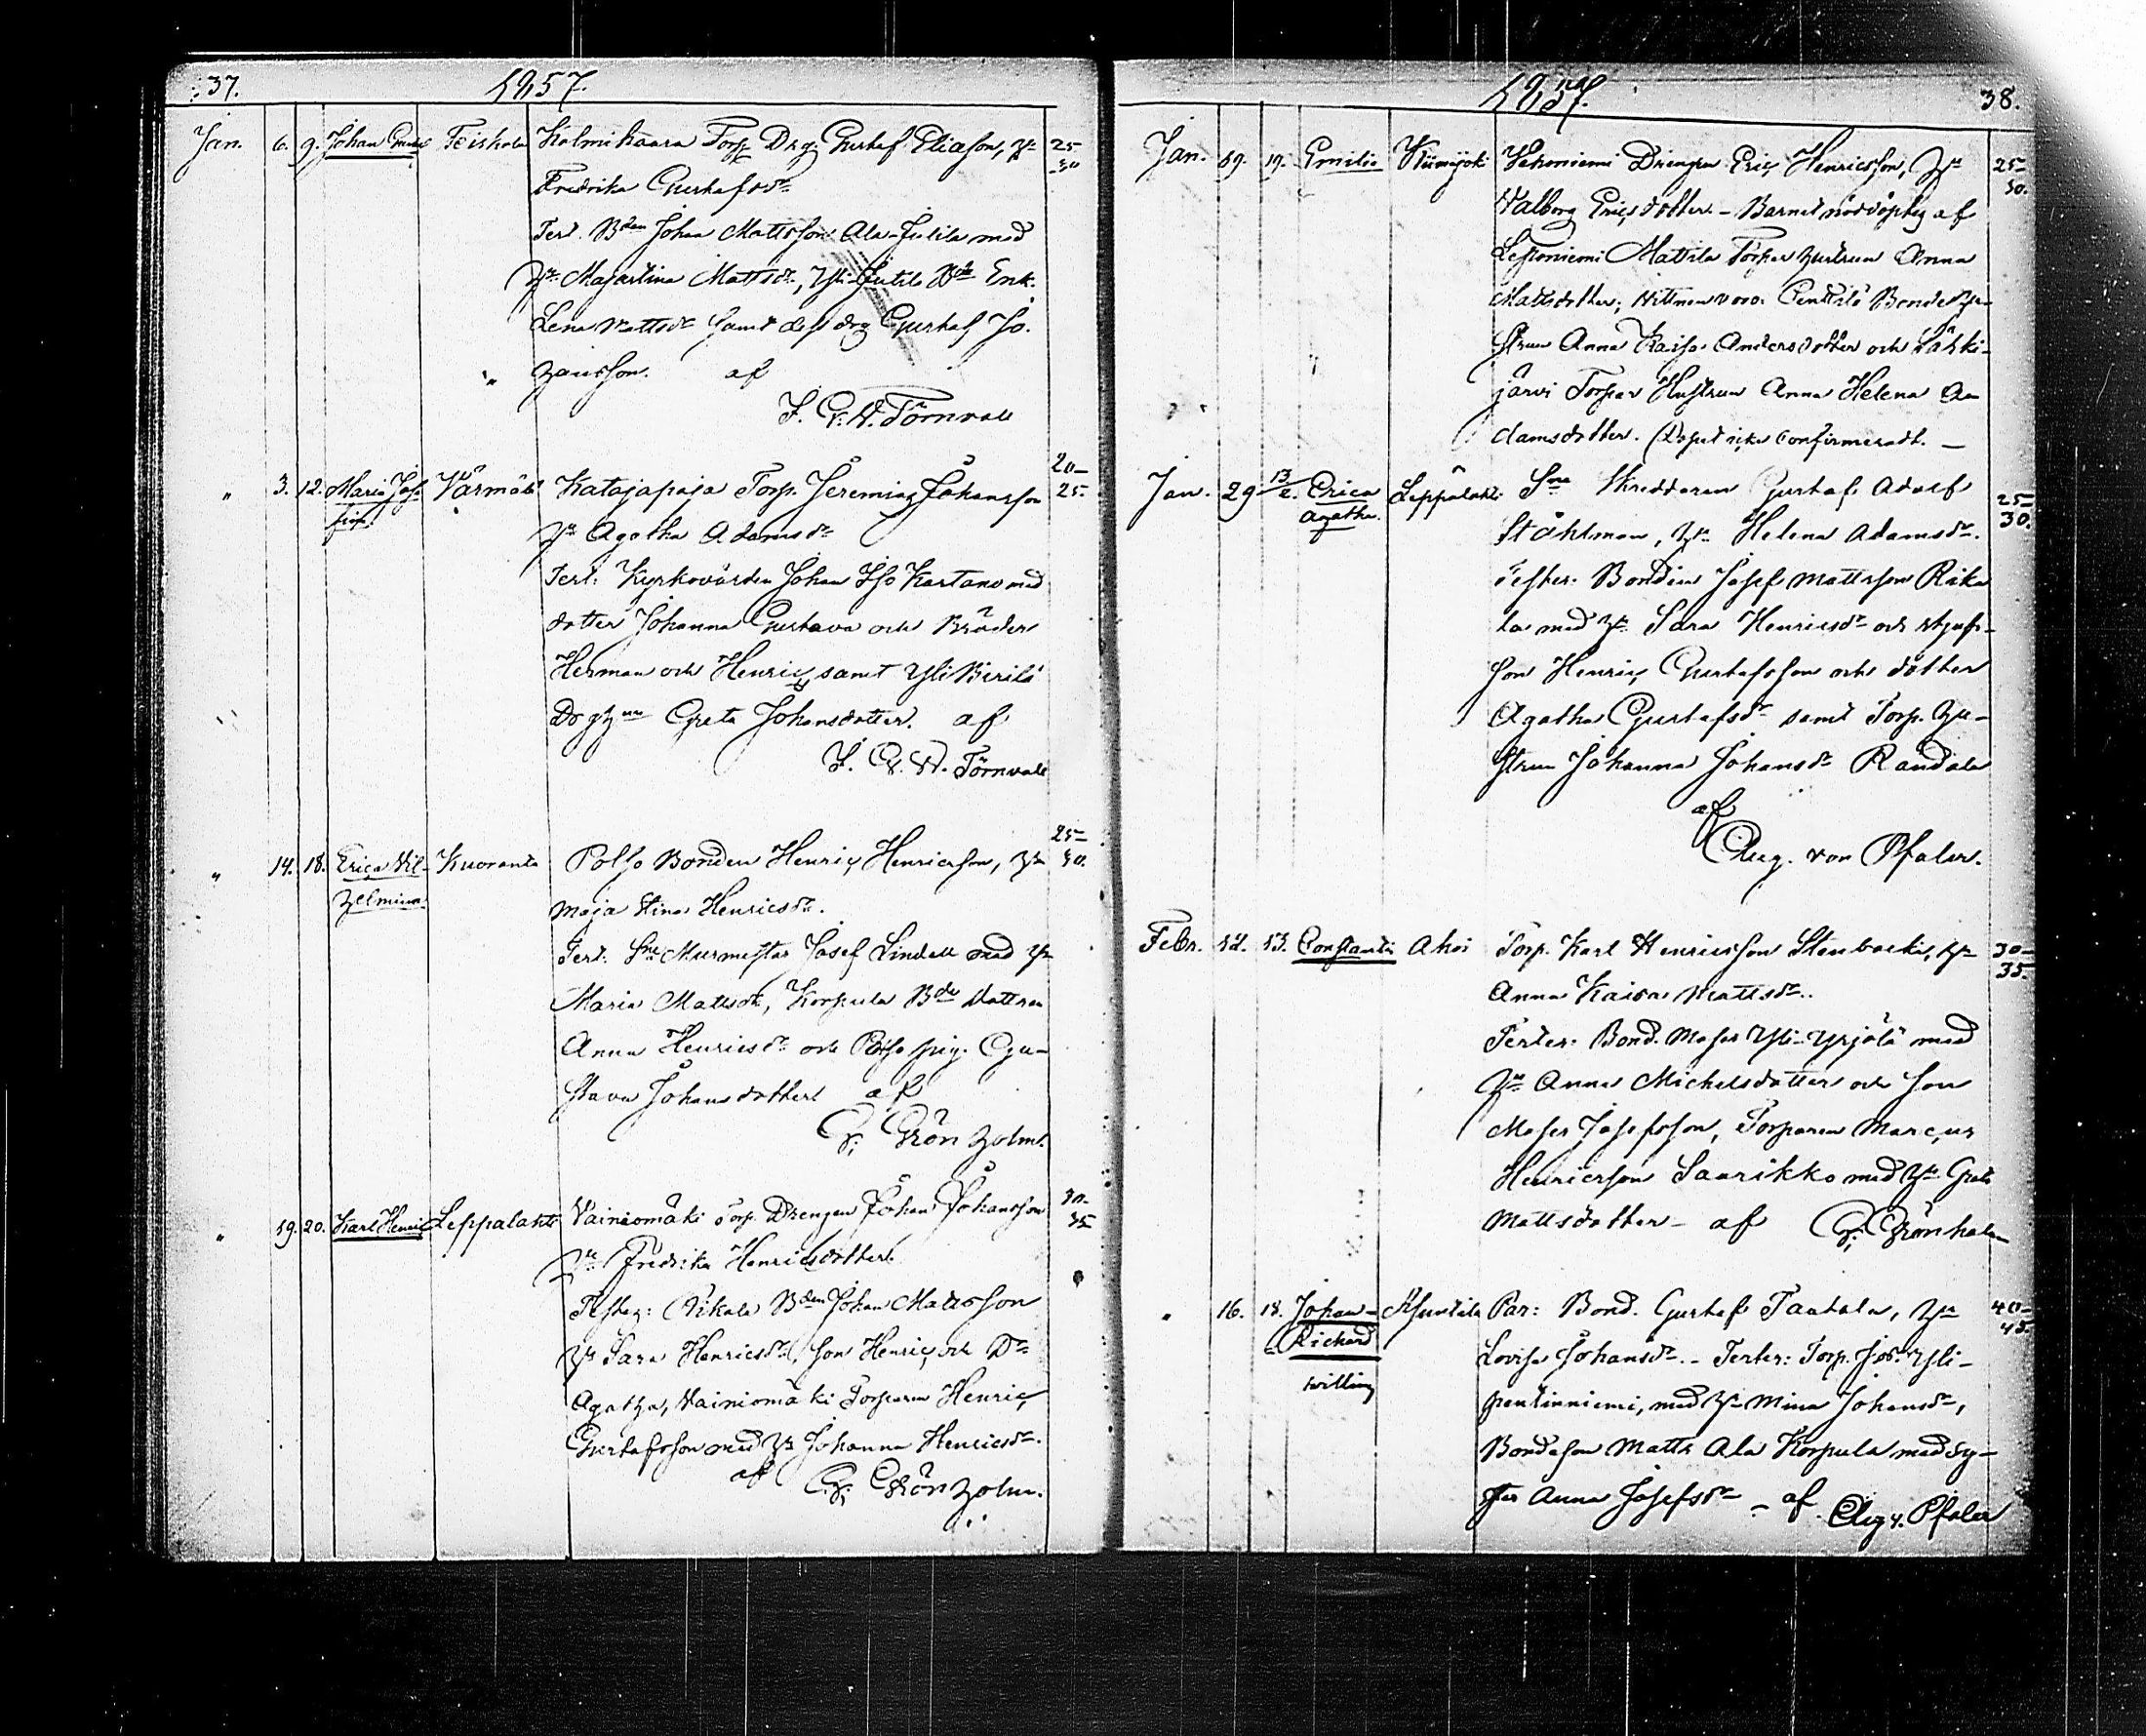 37.
1857.
Jan. 6. 9. Johan Teiskola Kolmihaara Torp. Drg. Gustaf Eliasson, hu 25
Fredrika Gustafsdr 30
Test. Bden Johan Mattsson Ala-Jutila med
hu Majastina Mattsdr, Yli-Jutila Bde Enk.
Lena Mattsdr samt dess drg Gustaf Jo-
hansson. af
F. G. W. Törnvall
" 3. 12. Maria Jose- Värmälä Katajapaja Torp. Jeremias Johansson 20
fina hu Agatha Adamsdr 25.
Test: Kyrkovärden Johan Iso Kartano med
dotter Johanna Gustava och Bröder
Herman och Henric, samt Yli Birilä
Drg hun Greta Johansdotter. af
F. G. W. Törnvall
" 14. 18. Erica Vil- Kuoranta Polso Bonden Henric Henricsson, hu 25
helmina Maja Stina Henricsdr. 30.
Test: Murmestar Josef Lindell med hu
Maria Mattsdr, Korpula Bde dottren
Anna Henricsdr och Polso pig. Gu-
stava Johansdotter af
G. Grönholm.
" 19. 20. Karl Henric Leppälahti Vainiomäki Torp. Drengen Johan Johansson 30
hu Fredrika Henricsdotter 35
Testes: Rikala Bden Johan Mattsson
hu Sara Henricsdr, son Henric, och Dr
Agatha, Vainiomäki Torparen Henric
Gustafsson med hu Johanna Henricsdr.
af G. Grönholm.
1857.
38.
Jan. 19. 19. Emilie Drengen Eric Henricsson, hu 25
Walborg Ericsdotter. – Barnet nöddöptes af 30.
Mattila Torpar hustrun Anna
Mattsdotter; Bonde hu-
strun Anna Kaisa Andersdotter och Lähki-
järvi Torpar Hustrun Anna Helena A-
damsdotter. (Dopet icke confirmeradt. –
Jan. 29 13/2. Erica Leppälahti Sne Skreddaren Gustaf Adolf 25
Agatha. Ståhlman, hu Helena Adamsdr. 30.
Testes: Bonden Josef Mattsson Rika-
la med hu Sara Henricsdr och styf-
son Henric Gustafsson och dotter
Agatha Gustafsdr samt Torp. hu-
strun Johanna Johansdr Randala
af
Aug. von Pfaler.
Febr. 12. 13. Constantin Ahoi Torp. Karl Henricsson Stenbacka, hu 30
Anna Kaisa Mattsdr. 35.
Testes: Bond. Moses Yli-Yrjölä med
hu Anna Michelsdotter och son
Moses Josefsson, Torparen Marcus
Henricsson Saarikko med hu Greta
Mattsdotter – af G. Grönholm
" 16. 18. Johan Par: Bond. Gustaf Tautala, hu 40
Rickard Lovisa Johansdr. – Testes: Torp. Jos. Yli- 45.
tvilling pentinniemi, med hu Mina Johansdr,
Bondeson Matts Ala Korpula med sy-
ster Anna Josefsdr – af Aug v. Pfaler